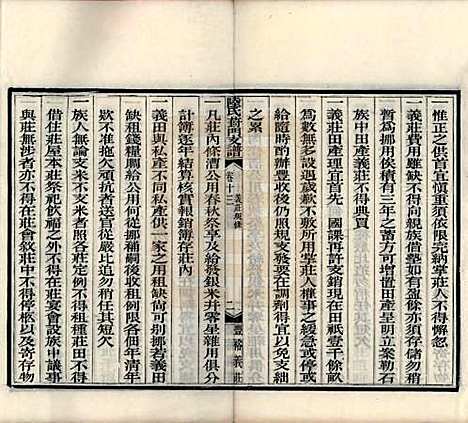 一惟正之供首宜慎重須依限完納掌莊人不得懈忽
一義莊費用雖不得向親族借墊如有盈餘亦須存儲以
暫爲挪用俟積有三年之蓄方可增置田產明立案勒石
族中田產義莊不得典買
一義莊田產理宜首先 國課再許支銷現在田祇壹千餘畝
爲數無多設遇歲歉不敷所用掌莊人權事之緩急或停或
給隨時酌辦豐收後仍照規支發要在調劑得宜以免支絀
之累
陸氏葑門支譜 卷十三 義莊規條 二 豐裕義莊
一凡莊內修漕公用春秋祭享及給發銀米并零星雜用俱分
計簿逐年結算核實報銷彙存莊內
一義田與私產不同私產供一家之用租缺尚可別挪義田
缺租錢糧闕給公用何從挪補嗣後收租例限各佃年清年
欠不准拖欠頑抗者送官從嚴比追勿任其短欠
一族人無論支米不支米者照各莊定例不得租種莊田不得
借住莊屋本莊祭祀飲福之外不得在莊宴會設族中議事
與莊無涉者亦不得在莊會敘莊中不得停柩以及寄存物